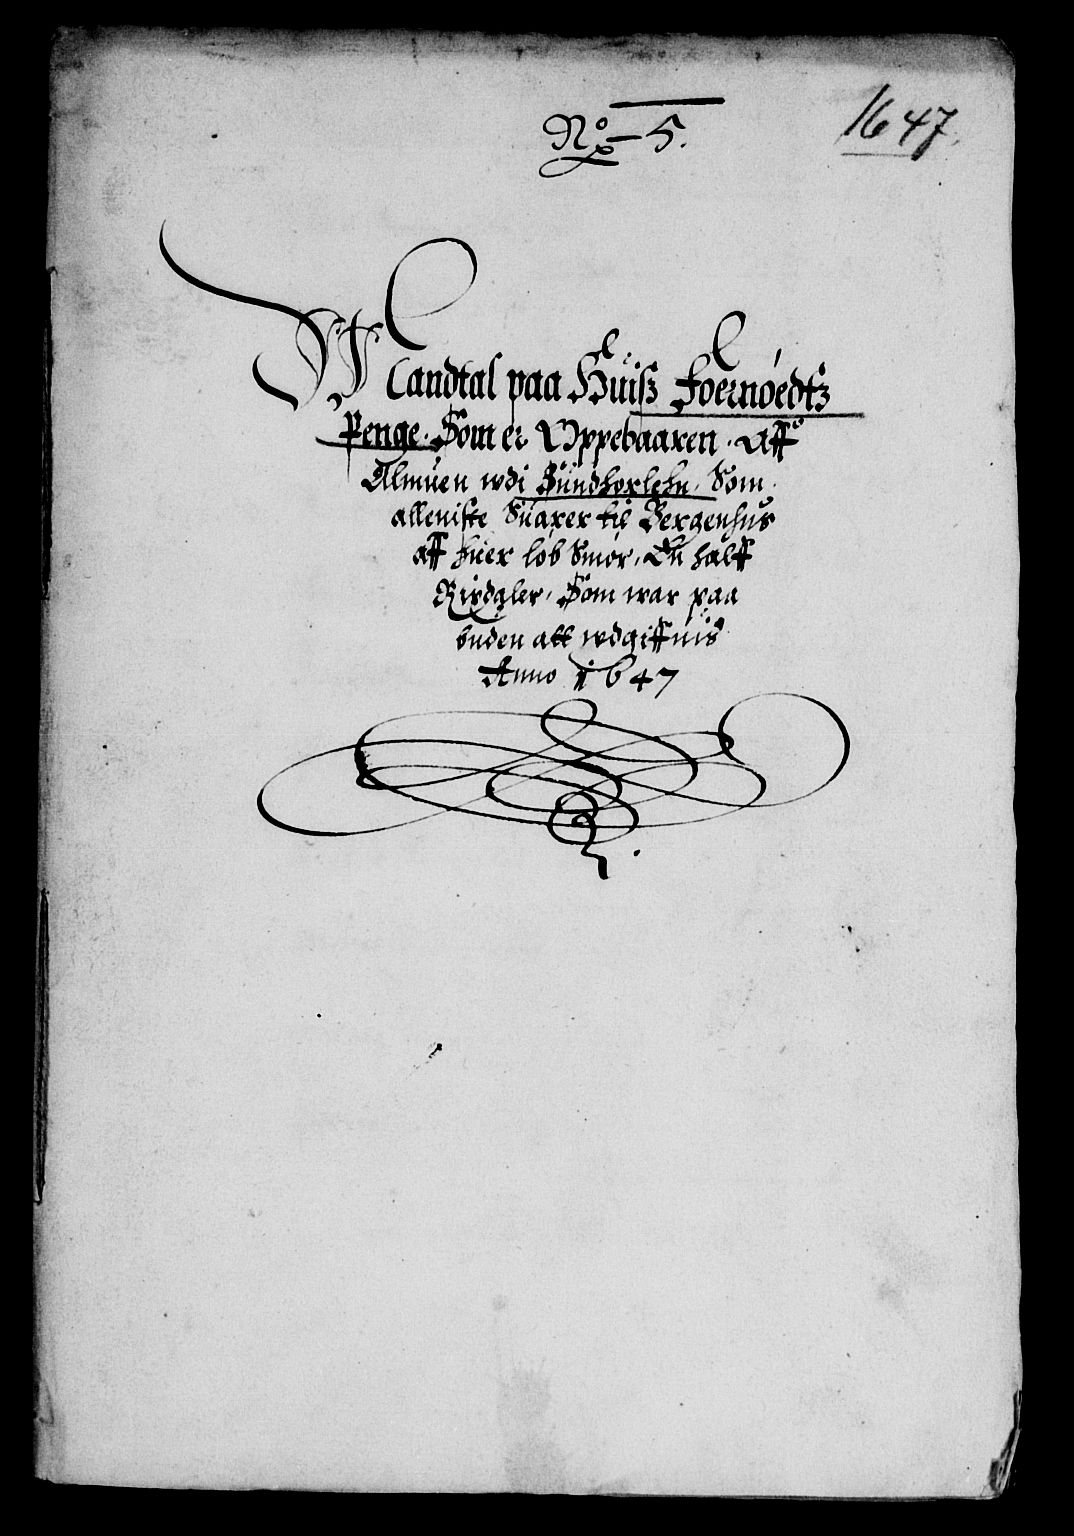 No 5.
1647.
Mandtal paa Huiss Foernøedtz
Penge. Som er Oppebaaren. Aff
Almuen wdi Sundhorlehn. Som
alleniste Suarer til Bergenhus
aff huer løb Smør, En halff
Rixdaler, Som war paa
buden att wdgiffuis
Anno 1647